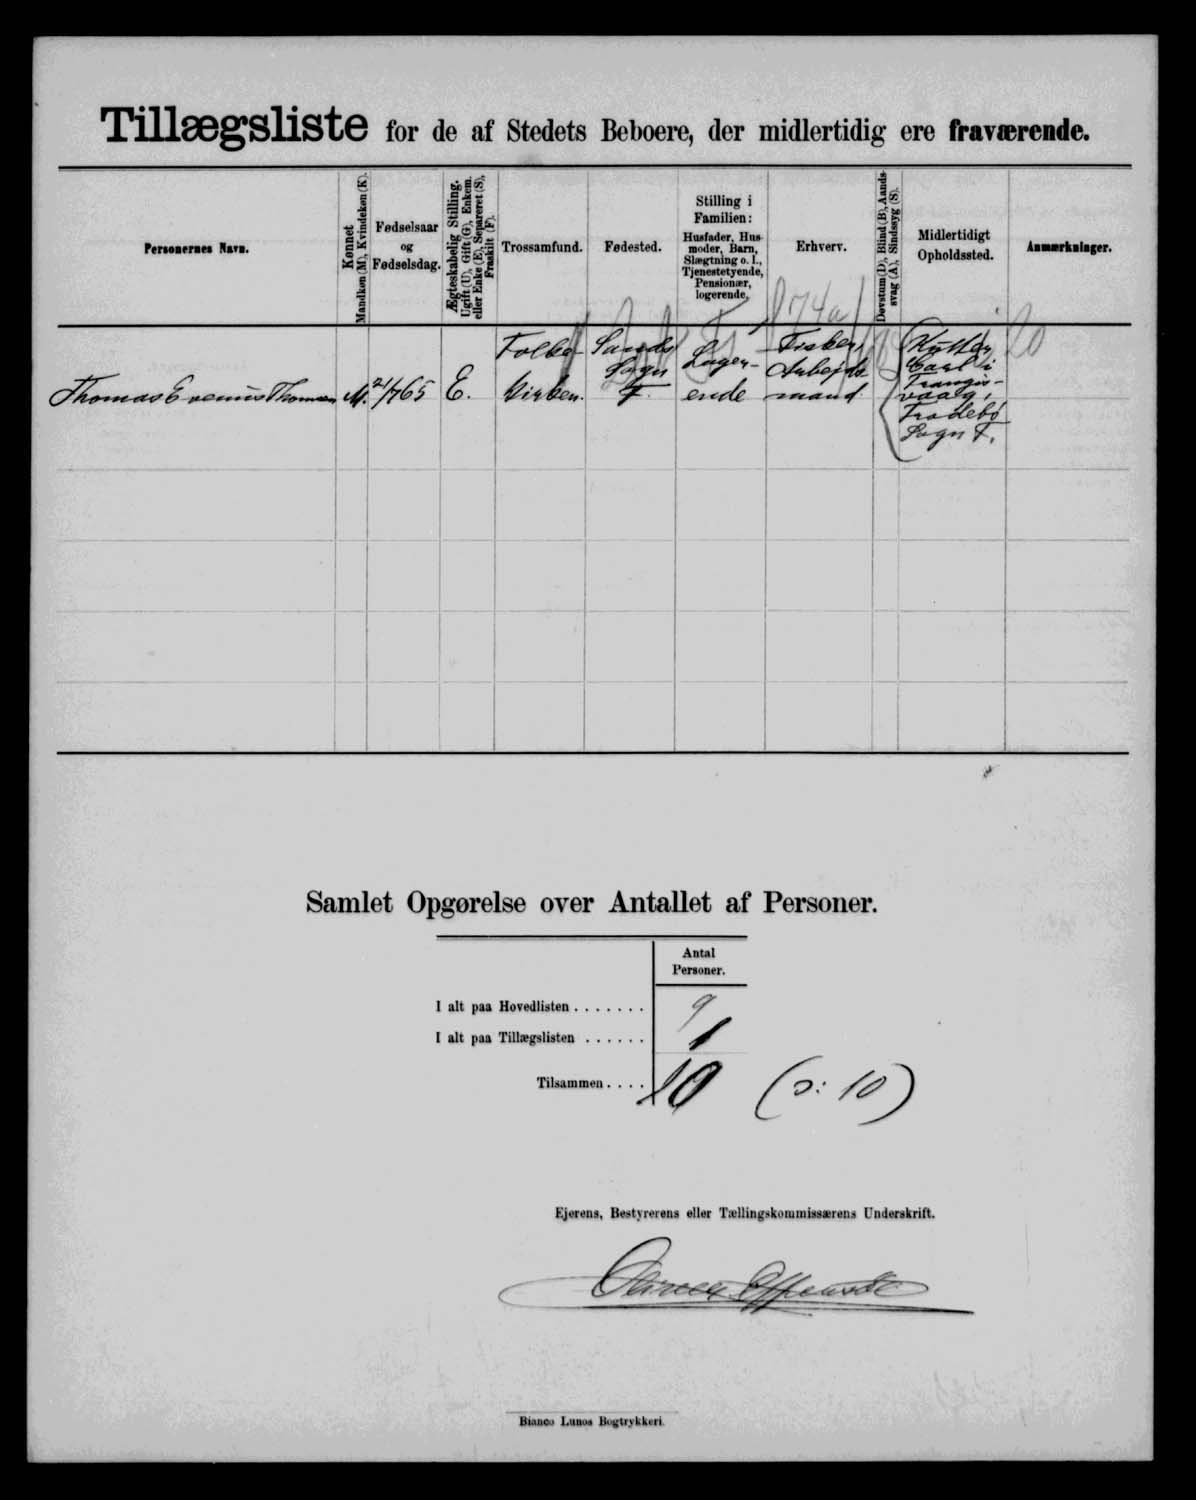 Tillægsliste for de af Stedets Beboere, der midlertidig ere fraværende.
Personernes Navn.
Kønnet
Mandkøn (M), Kvindekøn (K).
Fødselsaar
og
Fødselsdag.
Ægteskabelig Stilling.
Ugift (U), Gift (G), Enkem.
eller Enke (E), Separeret (S),
Fraskilt (F).
Trossamfund.
Fødested.
Stilling i
Familien:
Husfader, Hus-
moder, Barn,
Slægtning o. l.,
Tjenestetyende,
Pensionær,
logerende.
Erhverv.
Døvstum (D), Blind (B), Aands-
svag (A), Sindssyg (S).
Midlertidigt
Opholdssted.
Anmærkninger.
74a
20
Thomas Thomsen
M.
21/7 65
E.
Folke-
kirken.
Sands
Sogn
F.
Loger-
ende
Fisker,
Arbejds
mand
Kutter
Carl i
Trangis-
vaag,
Frodebö
Sogn F.
Samlet Opgørelse over Antallet af Personer.
Antal
Personer.
I alt paa Hovedlisten . . . . . . . 9
I alt paa Tillægslisten . . . . . . 1
Tilsammen . . . . 10 (ɔ: 10)
Ejerens, Bestyrerens eller Tællingskommissærens Underskrift.
Bianco Lunos Bogtrykkeri.